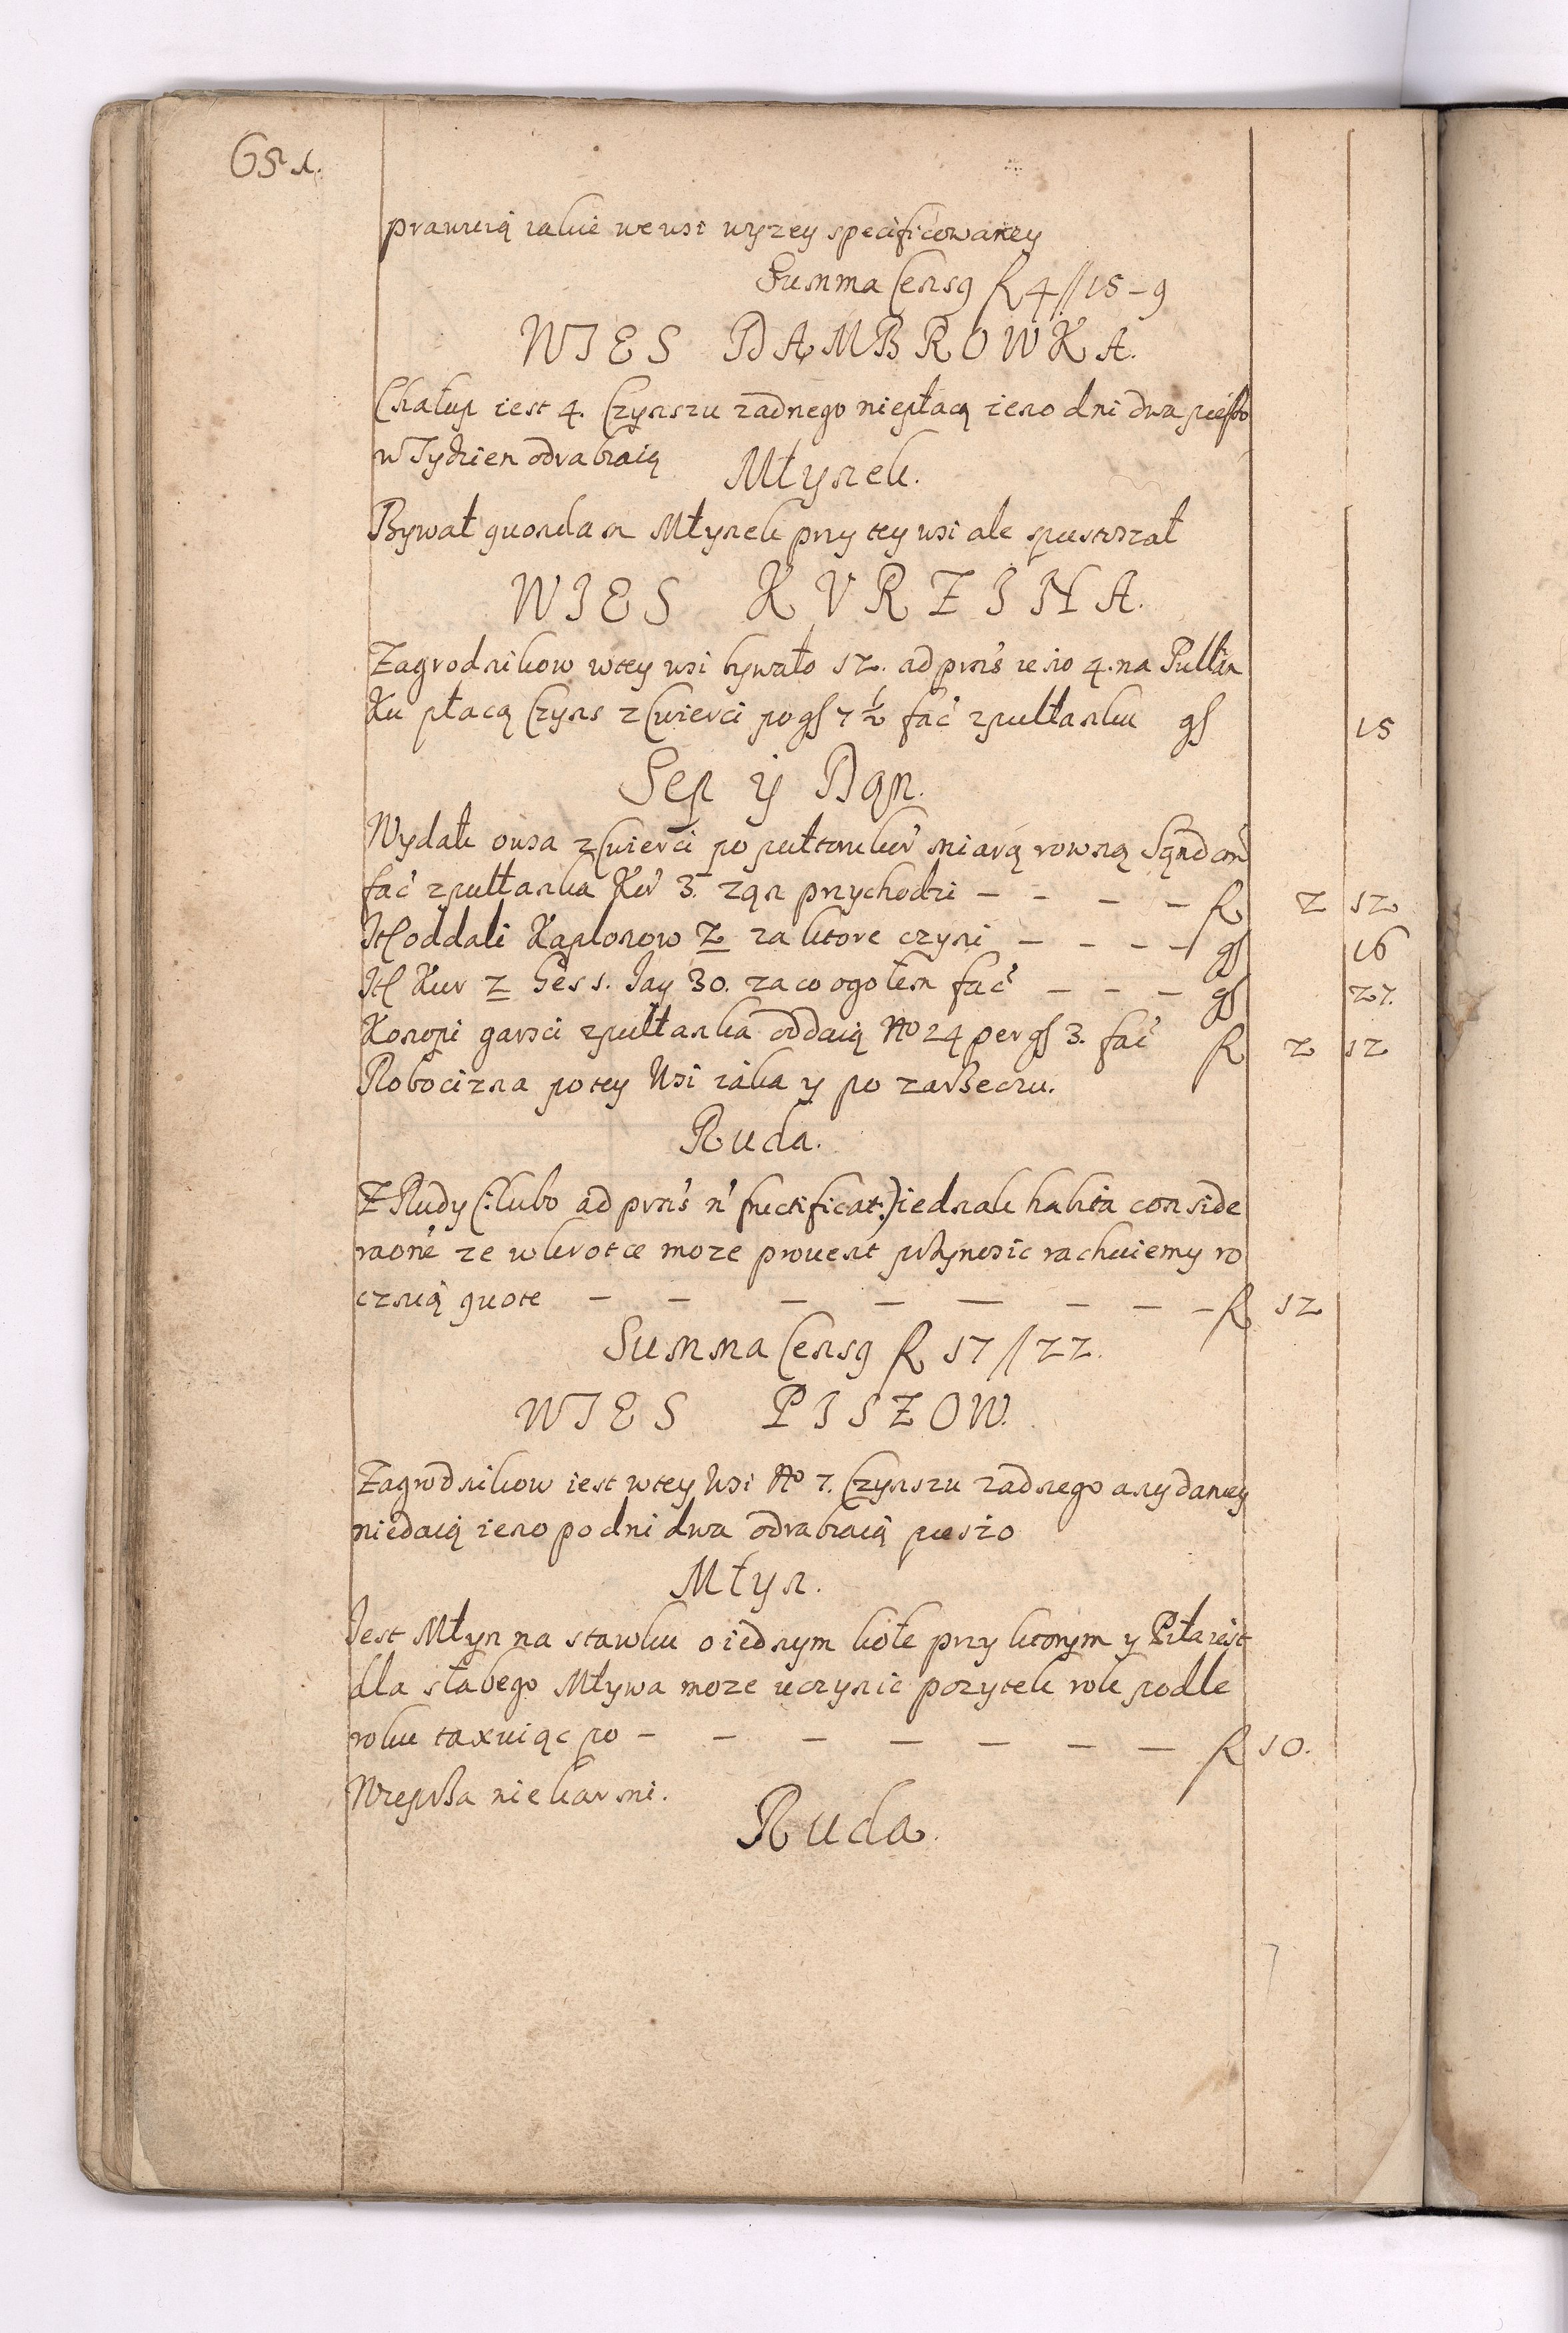 651.
prawuią iakie we wsi wyzey specificowaney
Summa Censq fl 4//15-9
WIES DAMBROWKA.
Chałup iest 4. Czynszu zadnego niepłacą ieno dni dwa pieszo
w Tydzien odrabiaią
Młynek.
Bywał quondam Młynek przy tey wsi ale spustoszał
WIES KVRZINA.
Zagrodnikow wtey wsi bywało 12. ad prns ieno 4. na Pułłan
Ku płacą Czyns z Cwierci po gs 7 1/2 fac zpułłanku gs 15
Sep ÿ Dan.
Wydali owsa z Cwierci po pułtorukur miarą rowną Sąndom
fac zpułłanka Kur 3. zan przychodzi - - - - fl 2 12
Itt oddali Kapłonow 2 za ktore czyni - - - - gs 16
Itt Kur 2 Ges 1. Jay 30. za co ogołem fac - - - gs 27.
Konopi garsci zpułłanka oddaią No 24 per gs 3. fac fl 2 12
Robocizna po tey Wsi iaka y po zarzeczu.
Ruda.
Z Rudy (: lubo ad prns n fructificat:) iednak habita conside
raone ze wkrotce moze prouent przynosic rachuiemy ro
cznią quote - - - - - - - - fl 12
Summa Censq fl 17//22.
WIES PISZOW.
Zagrodnikow iest wtey Wsi No 7. Czynszu zadnego any daniey
niedaią ieno po dni dwa odrabiaią pieszo
Młyn.
Jest Młyn na stawku o iednym kole przy ktorym y Piła iest
dla słabego Mływa moze uczynic pozytek rok podle
roku taxuiąc po - - - - - - - fl 10.
Wieprza nie karmi.
Ruda.